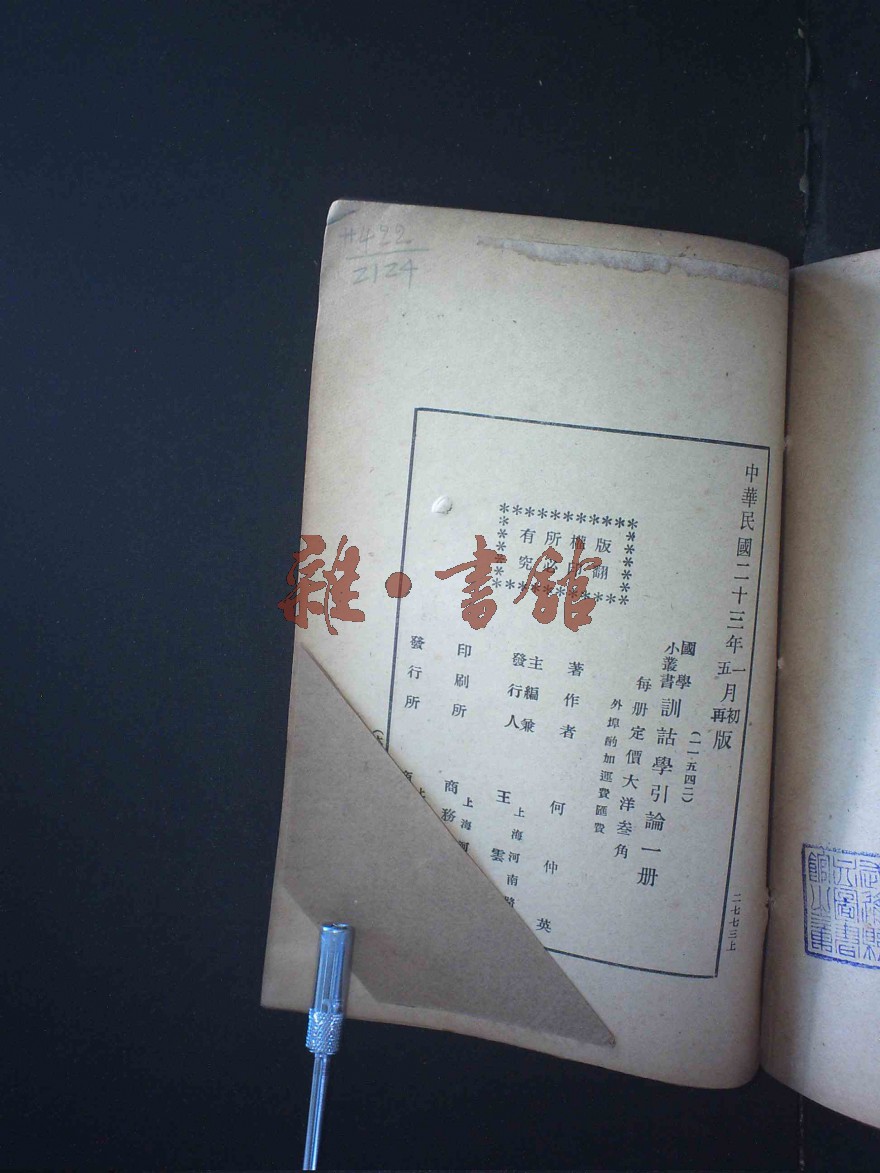 中華民國二十三年一月初版
五再
國學
小叢書
訓詁學引論一册
(一一五四二)
每册定價大洋叁角
外埠酌加運費匯費
著作者 何仲英
主編兼
發行人
王雲
上海河南路
印刷所
商務
上海河
發行所
版權所有
翻印必究
二七七三上
雜·書館
#422
2124